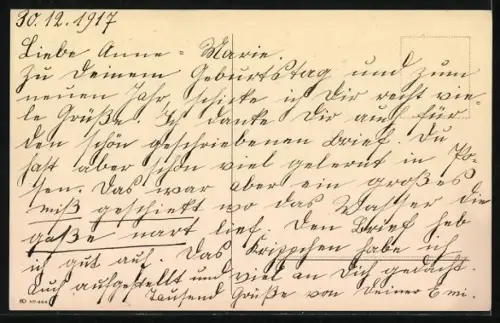 30.12.1917
Liebe Anne-Marie.
Zu Deinem Geburtstag und zum
neuen Jahr, schicke ich Dir recht vie-
le Grüße. Ich danke Dir auch für
den schön geschriebenen Brief. Du
hast aber schon viel gelernt in Po-
sen. Das war aber ein großes
miß geschickt wo das Wasser die
gaße nart lief. Den Brief heb
ich gut auf. Das Krippchen habe ich
auch aufgestellt und viel an Dich gedacht.
Tausend Grüße von Deiner Emi.